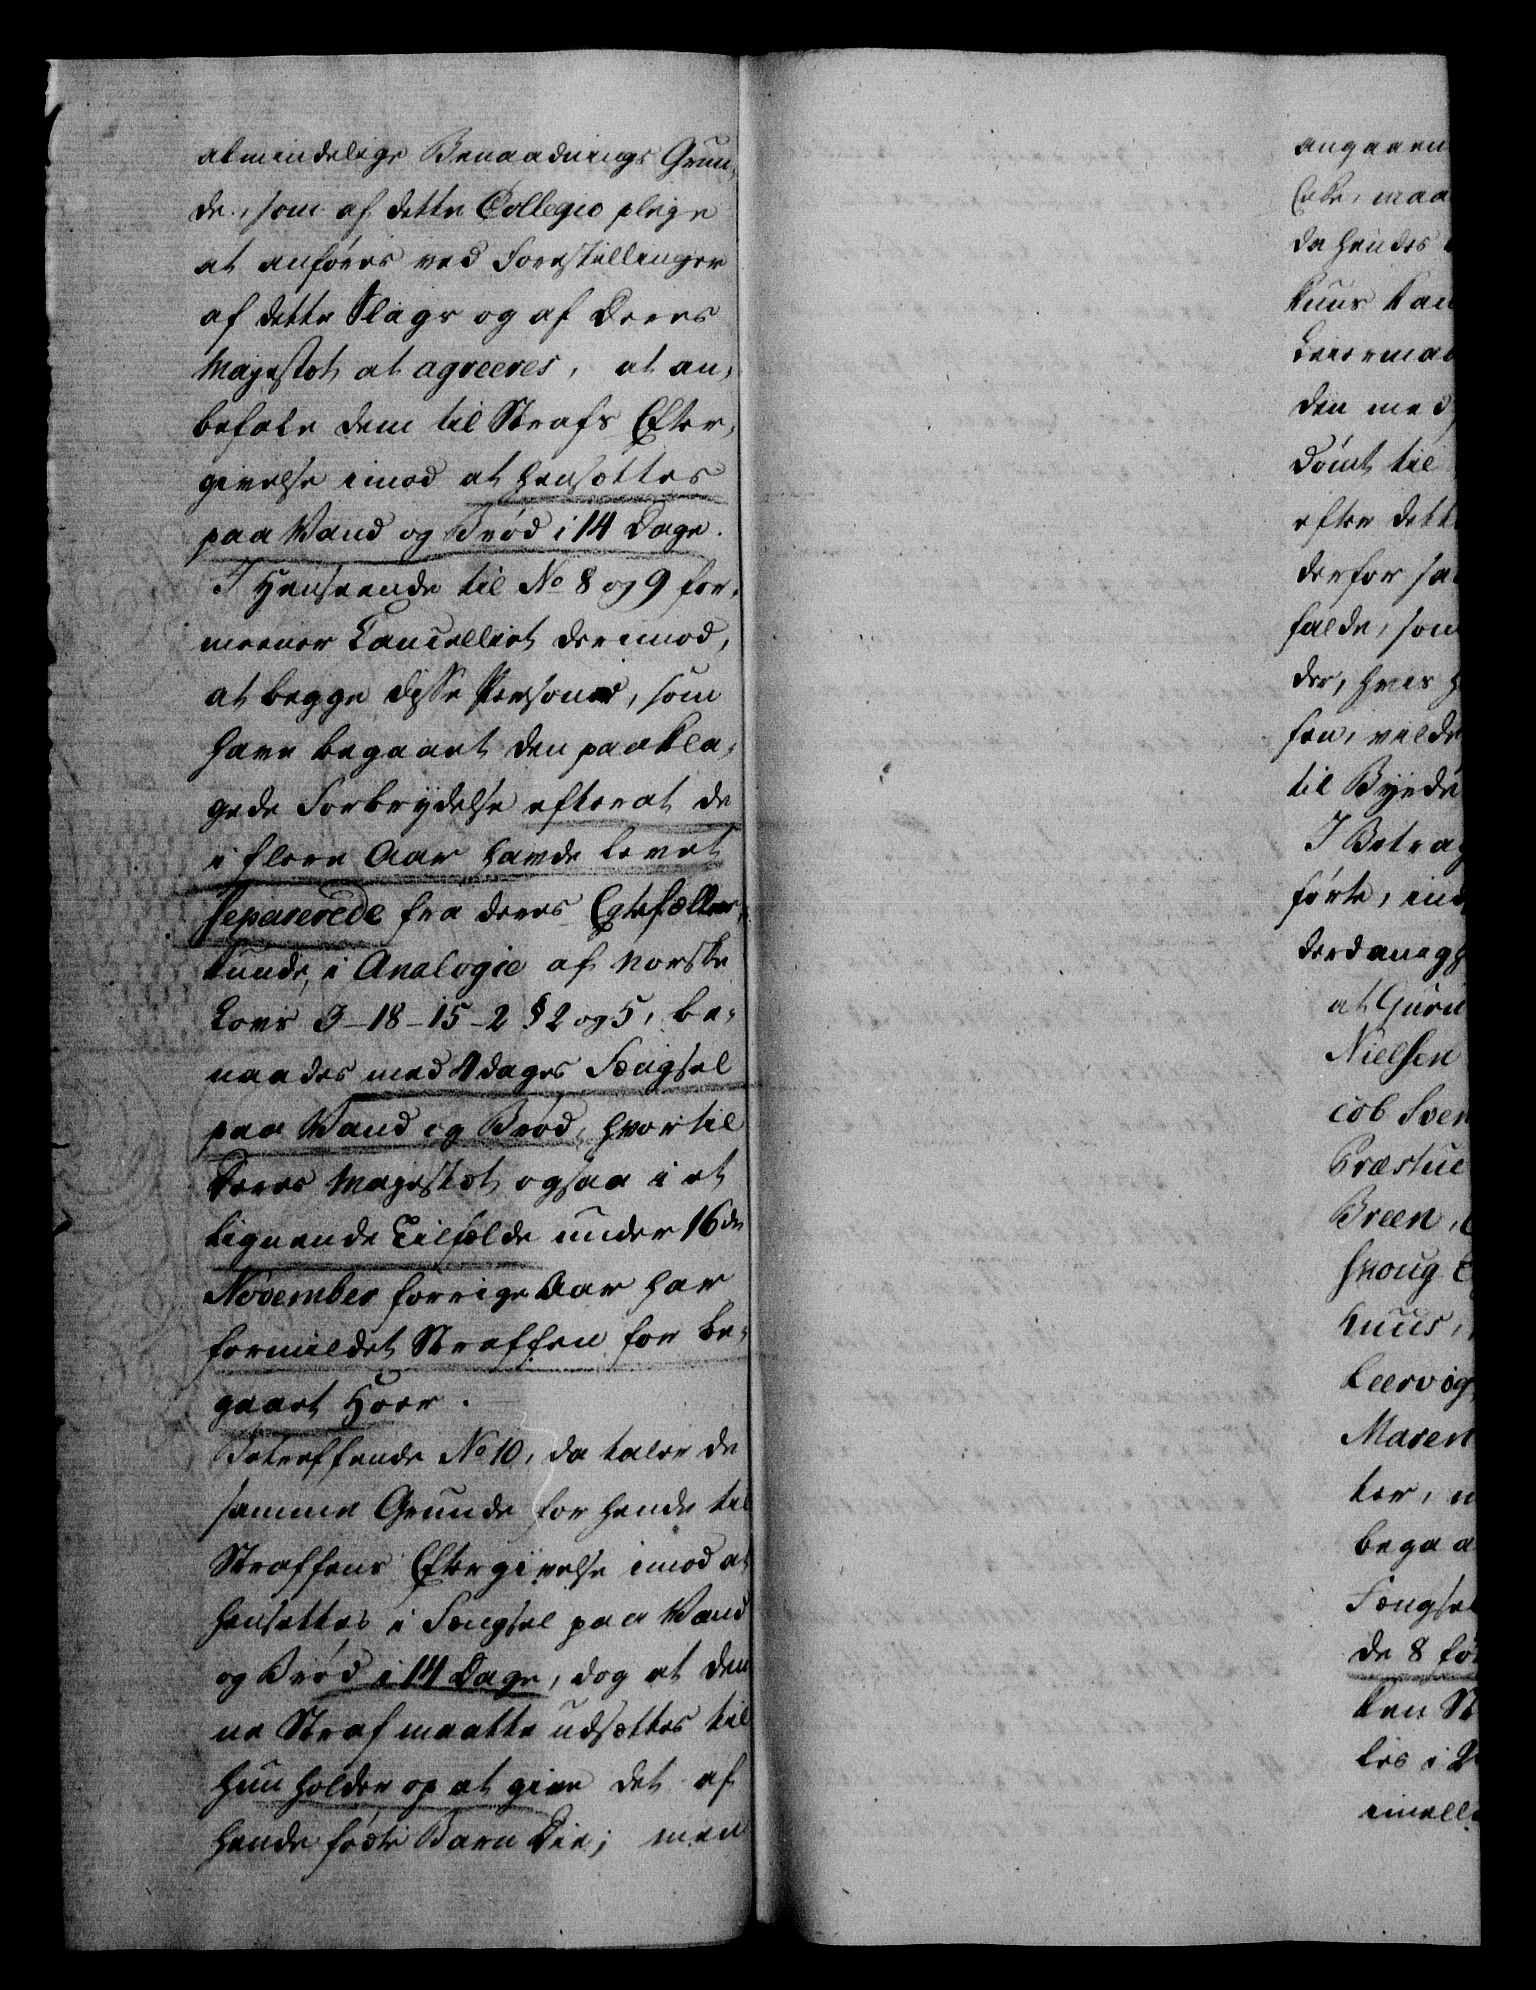 almindelige Benaadnings Grun-
de, som af dette Collegio pleye
at anføres ved Forestillinger
af dette Slags og af Deres
Majestæt at agreeres, at an-
befale dem til Strafs Efter-
givelse imod at hensættes
paa Vand og Brød i 14 Dage.
I Henseende til No 8 og 9 for-
meener Cancelliet derimod,
at begge disse Personer, som
have begaaet den paakla-
gede Forbrydelse efterat de
i flere Aar havde levet
separerede fra deres Egtefæller
kunde, i Analogie af Norske
Lovs 3-18-15-2 § 2 og 5, be-
naades med 4 dages Fængsel
paa Vand og Brød, hvortil
Deres Majestæt ogsaa i et
lignende Tilfælde under 16de
November forrige Aar har
formildet Straffen for be-
gaaet Hoer.
Betreffende No 10, da taler de
samme Grunde for hende til
Straffens Eftergivelse imod at
hensættes i Fængsel paa Vand
og Brød i 14 Dage, dog at den
ne Straf maatte udsættes til
hun holder op at give det af
hende fødte Barn Die; men
angaaen
maa
da hendes
huus kan
Leierma
den med
dømt til
efter dett
derfor sa
falde, som
der, hvis h
sen, vilde
til Byrde
I Betrag
førte, ind
derdanigs
at Guru
Nielsen
cob Sven
Præstue
Breen,
huus,
Leervig
Maren
ter, n
begaa
Fængsel
de 8 før
ken St
les i
imell